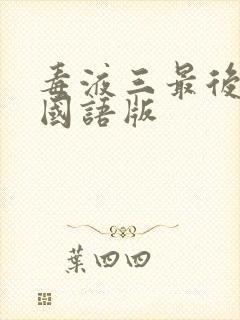 毒液三最後
國語版
葉四四